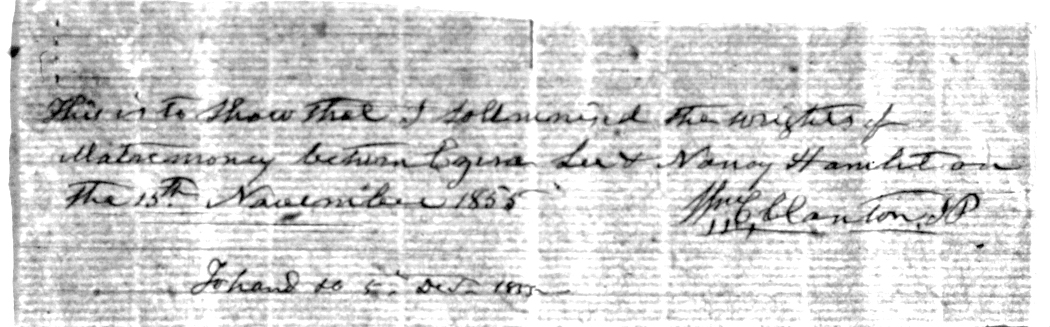 This is to Show that I Sollmnised the wrights of
Matremoney between Ezira Lee & Nancy Hamlet on
the 15th November 1855
Wm C Clanton, J P
To hand 5th Dec 1855